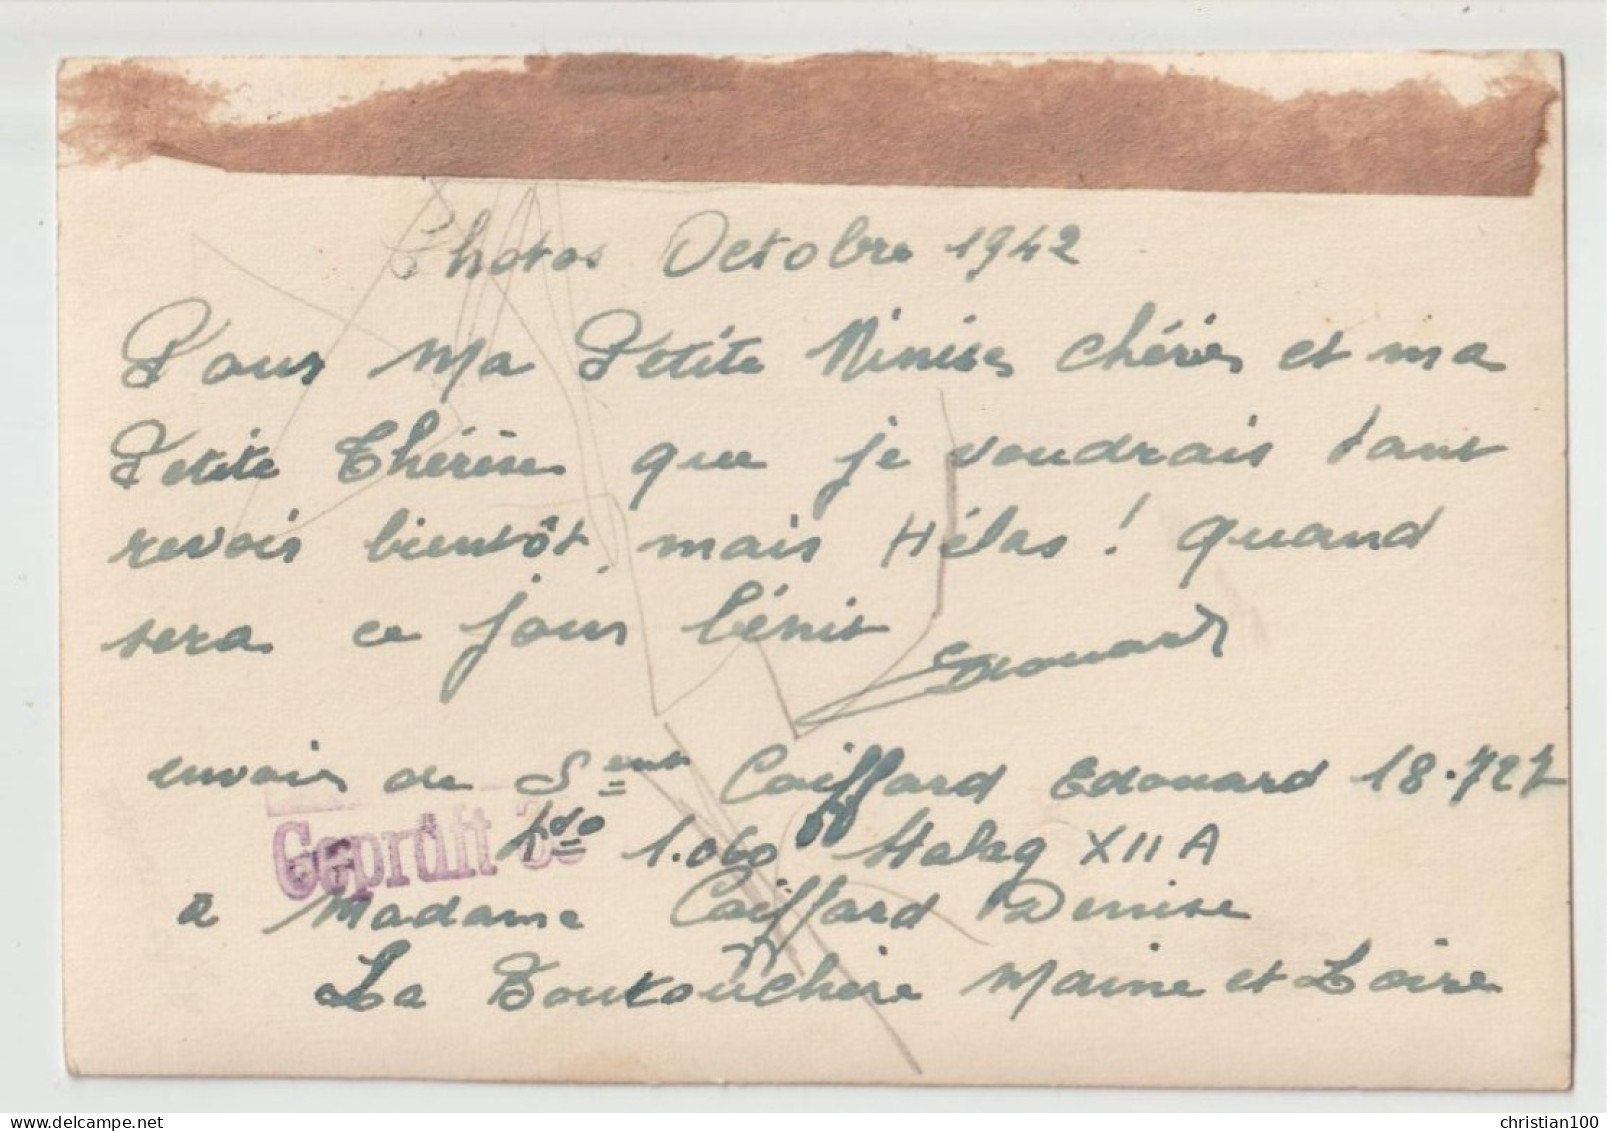 Photos Octobre 1942
Pour Ma Petite Ninise chérie et ma
Petite Thérèse que je voudrais tant
revoir bientôt, mais Hélas ! quand
sera ce jour bénit
Edouard
envoi de Coiffard Edouard 18.727
Geprüft
Kdo 1.060 Stalag XII A
à Madame Coiffard Denise
La Maine et Loire
christian100